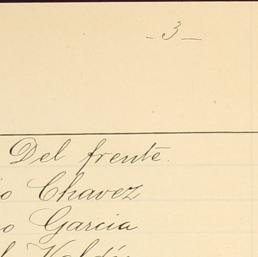 - 3 -
Del frente.
o Chavez
o Garcia
l Valdés